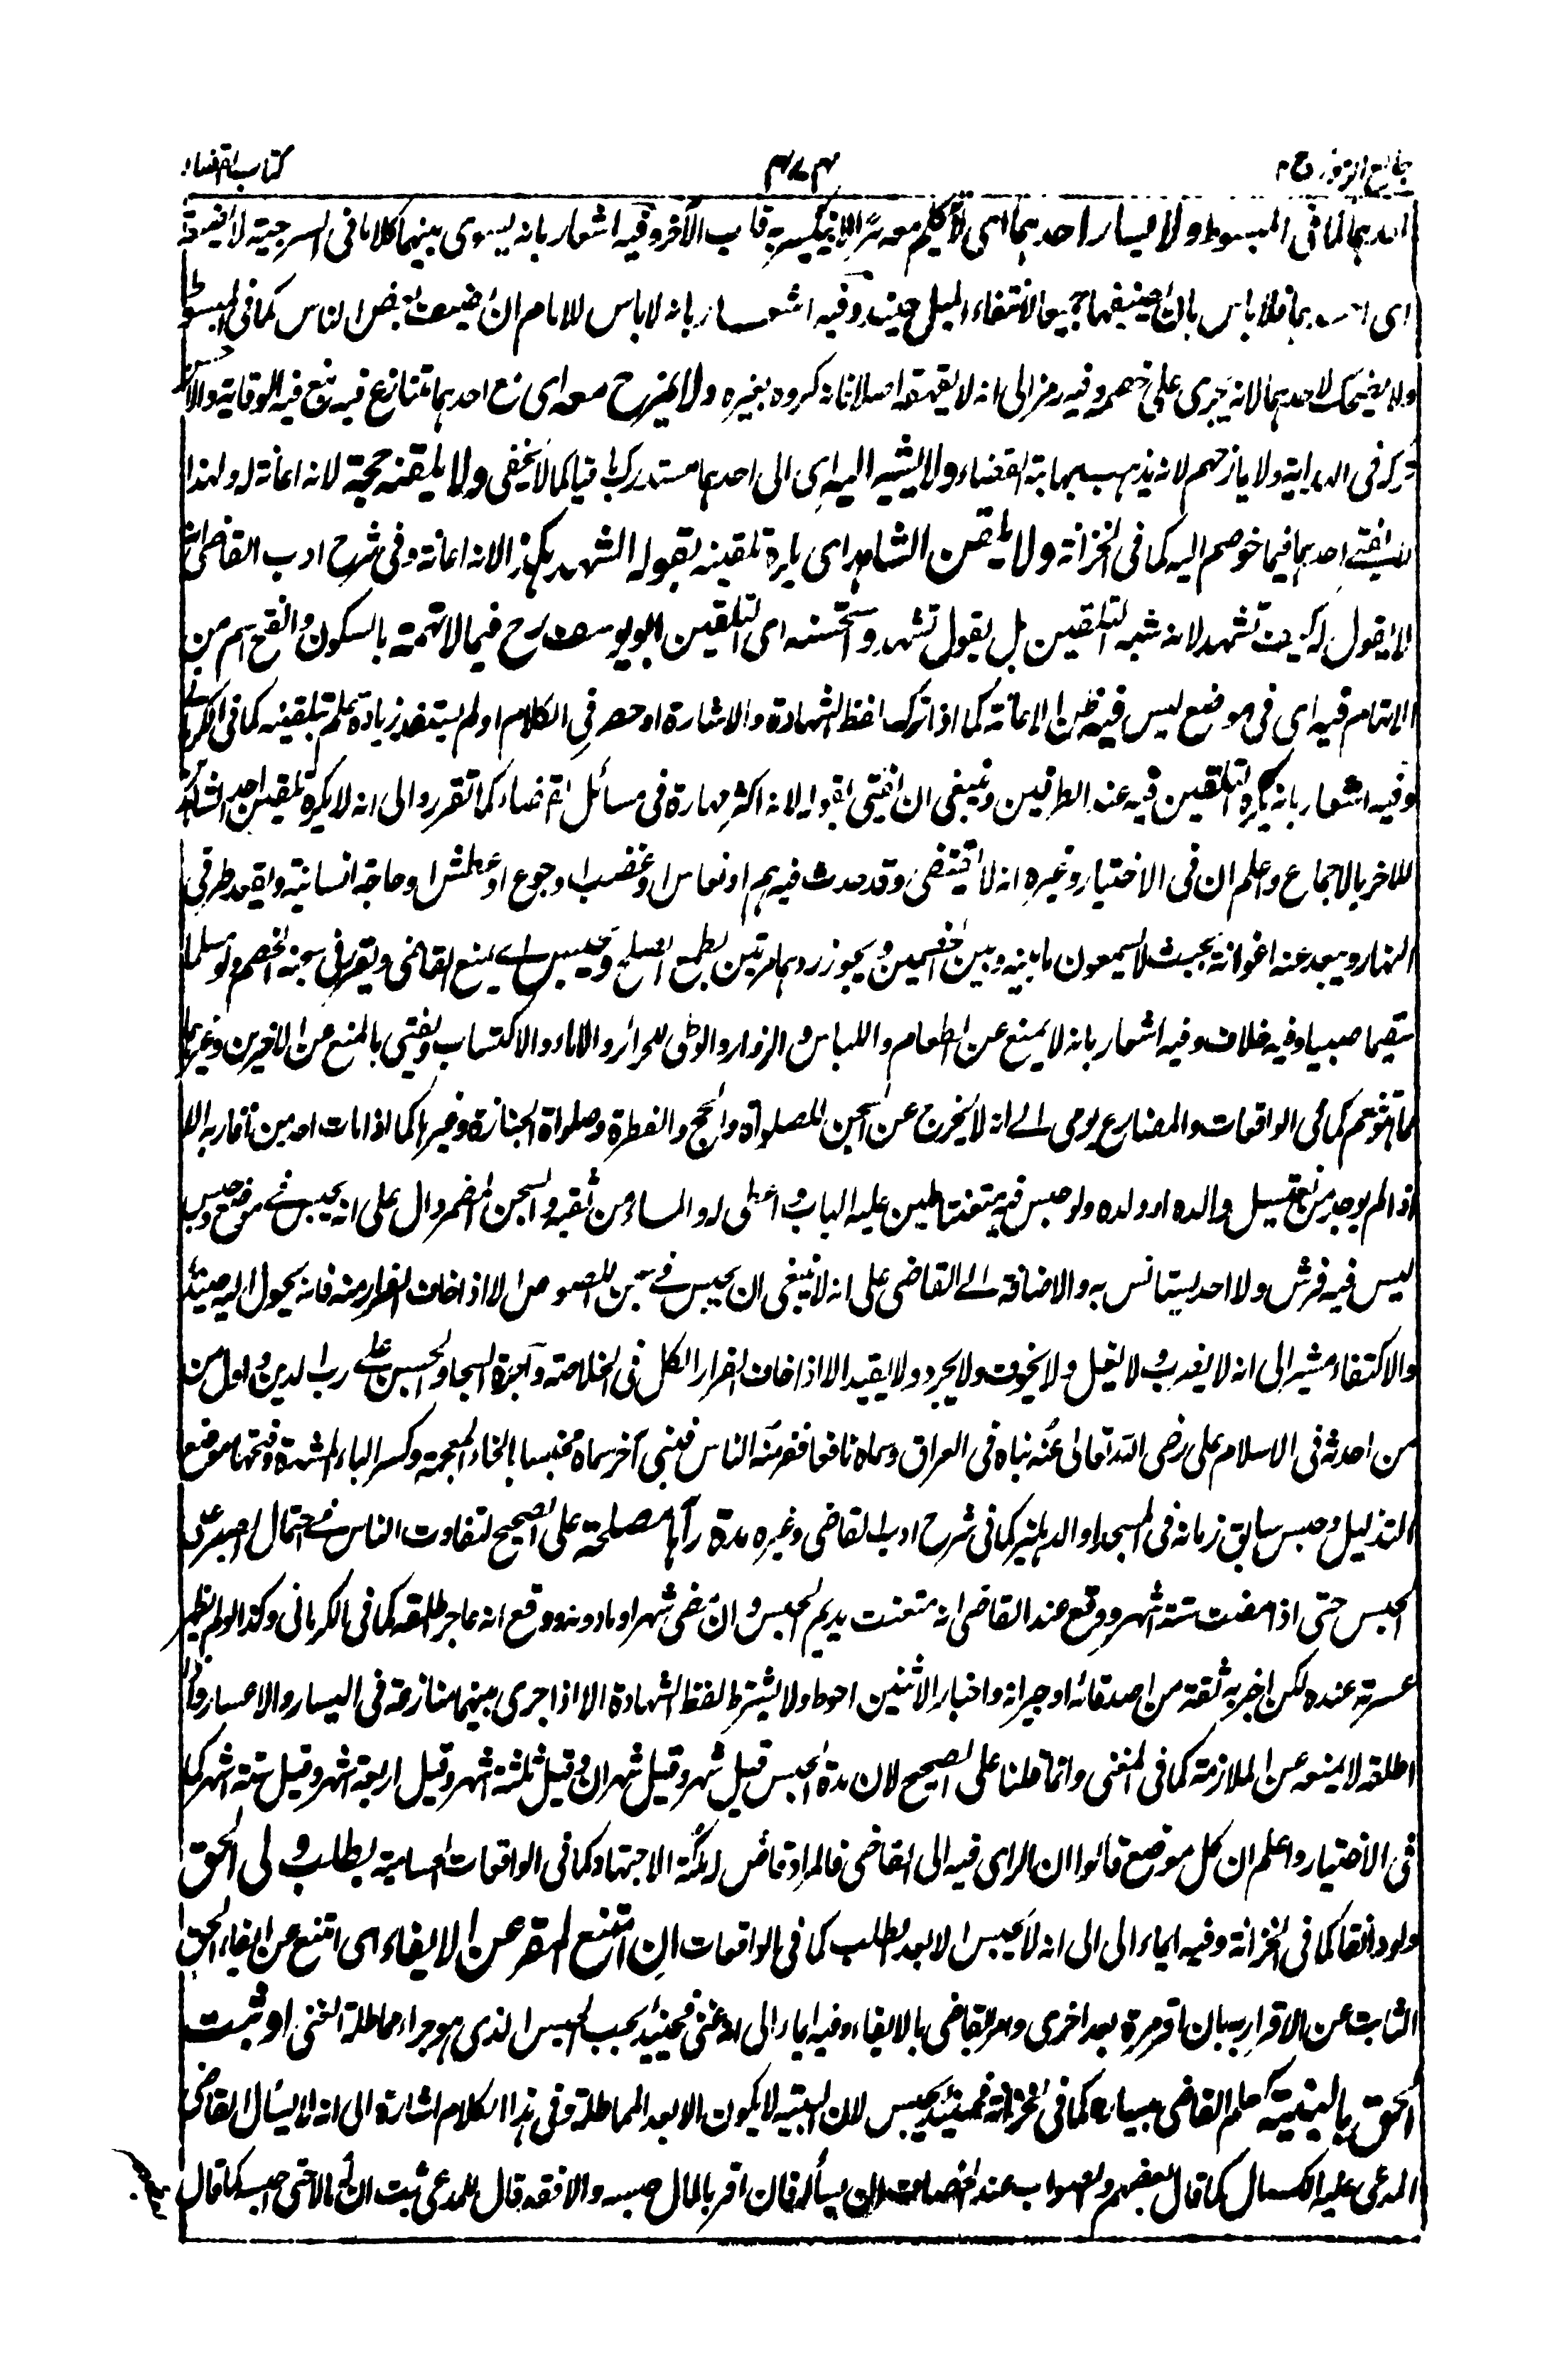 جامع الرموز ج ٢ ٤٧٤ كتاب القضاء
احدهما كما فى المبسوط ولا يسار احدهما اى لا يكلم معه سرا لانه ينكسر به قلب الآخر وفيه اشعار بانه يسوى بينهما كلاما فى السرجية لا يضيف
اى احدهما فلا باس بان يضيفهما جميعا لانتفاء الميل حينئذ وفيه اشعار بانه لا باس للامام ان يضيف بعض الناس كما فى المبسوط
ولا يضحك لاحدهما لانه يجرى على خصمه وفيه رمز الى انه لا يقهقه اصلا فانه مكروه بغيره ولا يمزح معه اى مع احدهما تنازع فيه مع فيه الوقاية والاحسن
تركه فى الهداية ولا يمازحهم لانه يذهب بمهابة القضاء ولا يشير اليه اى الى احدهما مستدرك باقيا كما لا يخفى ولا يلقنه حجة لانه اعانة له ولهذا
لا يفتى احدهما فيما خوصم اليه كما فى الخزانة ولا يلقن الشاهد اى يكره تلقينه بقوله اتشهد بكذا لانه اعانة وفى شرح ادب القاضى انه
لا يقول له كيف تشهد لانه شبه التلقين بل يقول تشهد واستحسنه اى التلقين ابو يوسف رح فيما لا تهمة بالسكون والفتح اسم من
الاتهام فيه اى فى موضع ليس فيه ظن الاعانة كما اذا ترك لفظ الشهادة والاشارة او حصر فى الكلام او لم يستفد زيادة علم بتلقينه كما فى الكرمانى
وفيه اشعار بانه يكره التلقين فيه عند الطرفين وينبغى ان يفتى بقوله لانه اكثر مهارة فى مسائل القضاء كما تقرر والى انه لا يكره تلقين احد الشاهدين
للآخر بالاجماع واعلم ان فى الاختيار وغيره انه لا يقتضى وقد حدث فيه هم او نعاس او غضب او جوع او عطش او حاجة انسانية ويقعد طرفى
النهار ويبعد عنه اعوانه بحيث لا يسمعون ما بينه وبين الخصمين ويجوز ردهما مرتين لطمع الصلح ويحبس اى يمنع القاضى وتعريفه الخصم ولو مسلما
يتيما صبيا وفيه خلاف وفيه اشعار بانه لا يمنع عن الطعام واللباس والزوار والوطى للحرائر والاماء والاكتساب ويفتى بالمنع عن الاخيرين وغيرهما
كما فى الواقعات والمضارع يومى الى انه لا يخرج عن السجن للصلوة والحج والفطرة وصلوة الجنازة وغيرها كما اذا مات احد من اقاربه الا
اذا لم يوجد من يغسل والده او ولده ولو حبس فيه متعنتا طين عليه الباب واعطى له الماء من ثقبه والسجن المضمر دال على انه يحبس فى موضع وحش
ليس فيه فرش ولا احد يستانس به والاضافة الى القاضى على انه لا ينبغى ان يحبس فى سجن اللصوص الا اذا خاف الفرار منه فانه يحول اليه حينئذ
والاكتفاء مشير الى انه لا يضرب ولا يغل ولا يخوف ولا يجرد ولا يقيد الا اذا خاف الفرار الكل فى الخلاصة واجرة السجان والحبس على رب الدين واول من
من احدثه فى الاسلام على رضى الله تعالى عنه بناه فى العراق وسماه نافعا ففر منه الناس فبنى آخر سماه مخيسا بالخاء المعجمة وكسر الياء المشددة وفتحها موضع
التذليل وحبس سابق زمانه فى المسجد او الدهليز كما فى شرح ادب القاضى وغيره مدة رآها مصلحة على الصحيح لتفاوت الناس فى احتمال الصبر على
الحبس حتى اذا مضت ستة اشهر ووقع عند القاضى انه متعنت يديم الحبس وان مضى شهر او ما دونه ووقع انه عاجز اطلقه كما فى الكرمانى وكذا لو لم يظهر
عسرته عنده لكن اخبر به ثقة من اصدقائه او جيرانه واخبار الاثنين احوط ولا يشترط لفظ الشهادة الا اذا جرى بينهما منازعة فى اليسار والاعسار واذا
اطلقه لا يمنعه عن الملازمة كما فى المغنى وانما قلنا على الصحيح لان مدة الحبس قيل شهر وقيل شهران وقيل ثلثة اشهر وقيل اربعة اشهر وقيل ستة اشهر كما
فى الاختيار واعلم ان كل موضع قالوا ان الراى فيه الى القاضى فالمراد قاض له ملكة الاجتهاد كما فى الواقعات الحسامية بطلب ولى الحق
ولو دانقا كما فى الخزانة وفيه ايماء الى الى انه لا يحبس الا بعد الطلب كما فى الواقعات ان امتنع المقر عن الايفاء اى امتنع عن ايفاء الحق
الثابت عن الاقرار بان اقر مرة بعد اخرى وامر القاضى بالايفاء وفيه ايماء الى انه غنى فحينئذ يجب الحبس الذى هو جزاء مماطلة الغنى او ثبت
الحق بالبينة علم القاضى بيساره كما فى الخزانة فحينئذ يحبس لان البينة لا يكون الا بعد المماطلة وفى هذا الكلام اشارة الى انه لا يسأل القاضى
المدعى عليه الك مال كما قال بعضهم والصواب عند الخصاف ان يسأله فان اقر بالمال حبسه والا فقد قال للمدعى ثبت ان له مالا حتى احبسه كما قال